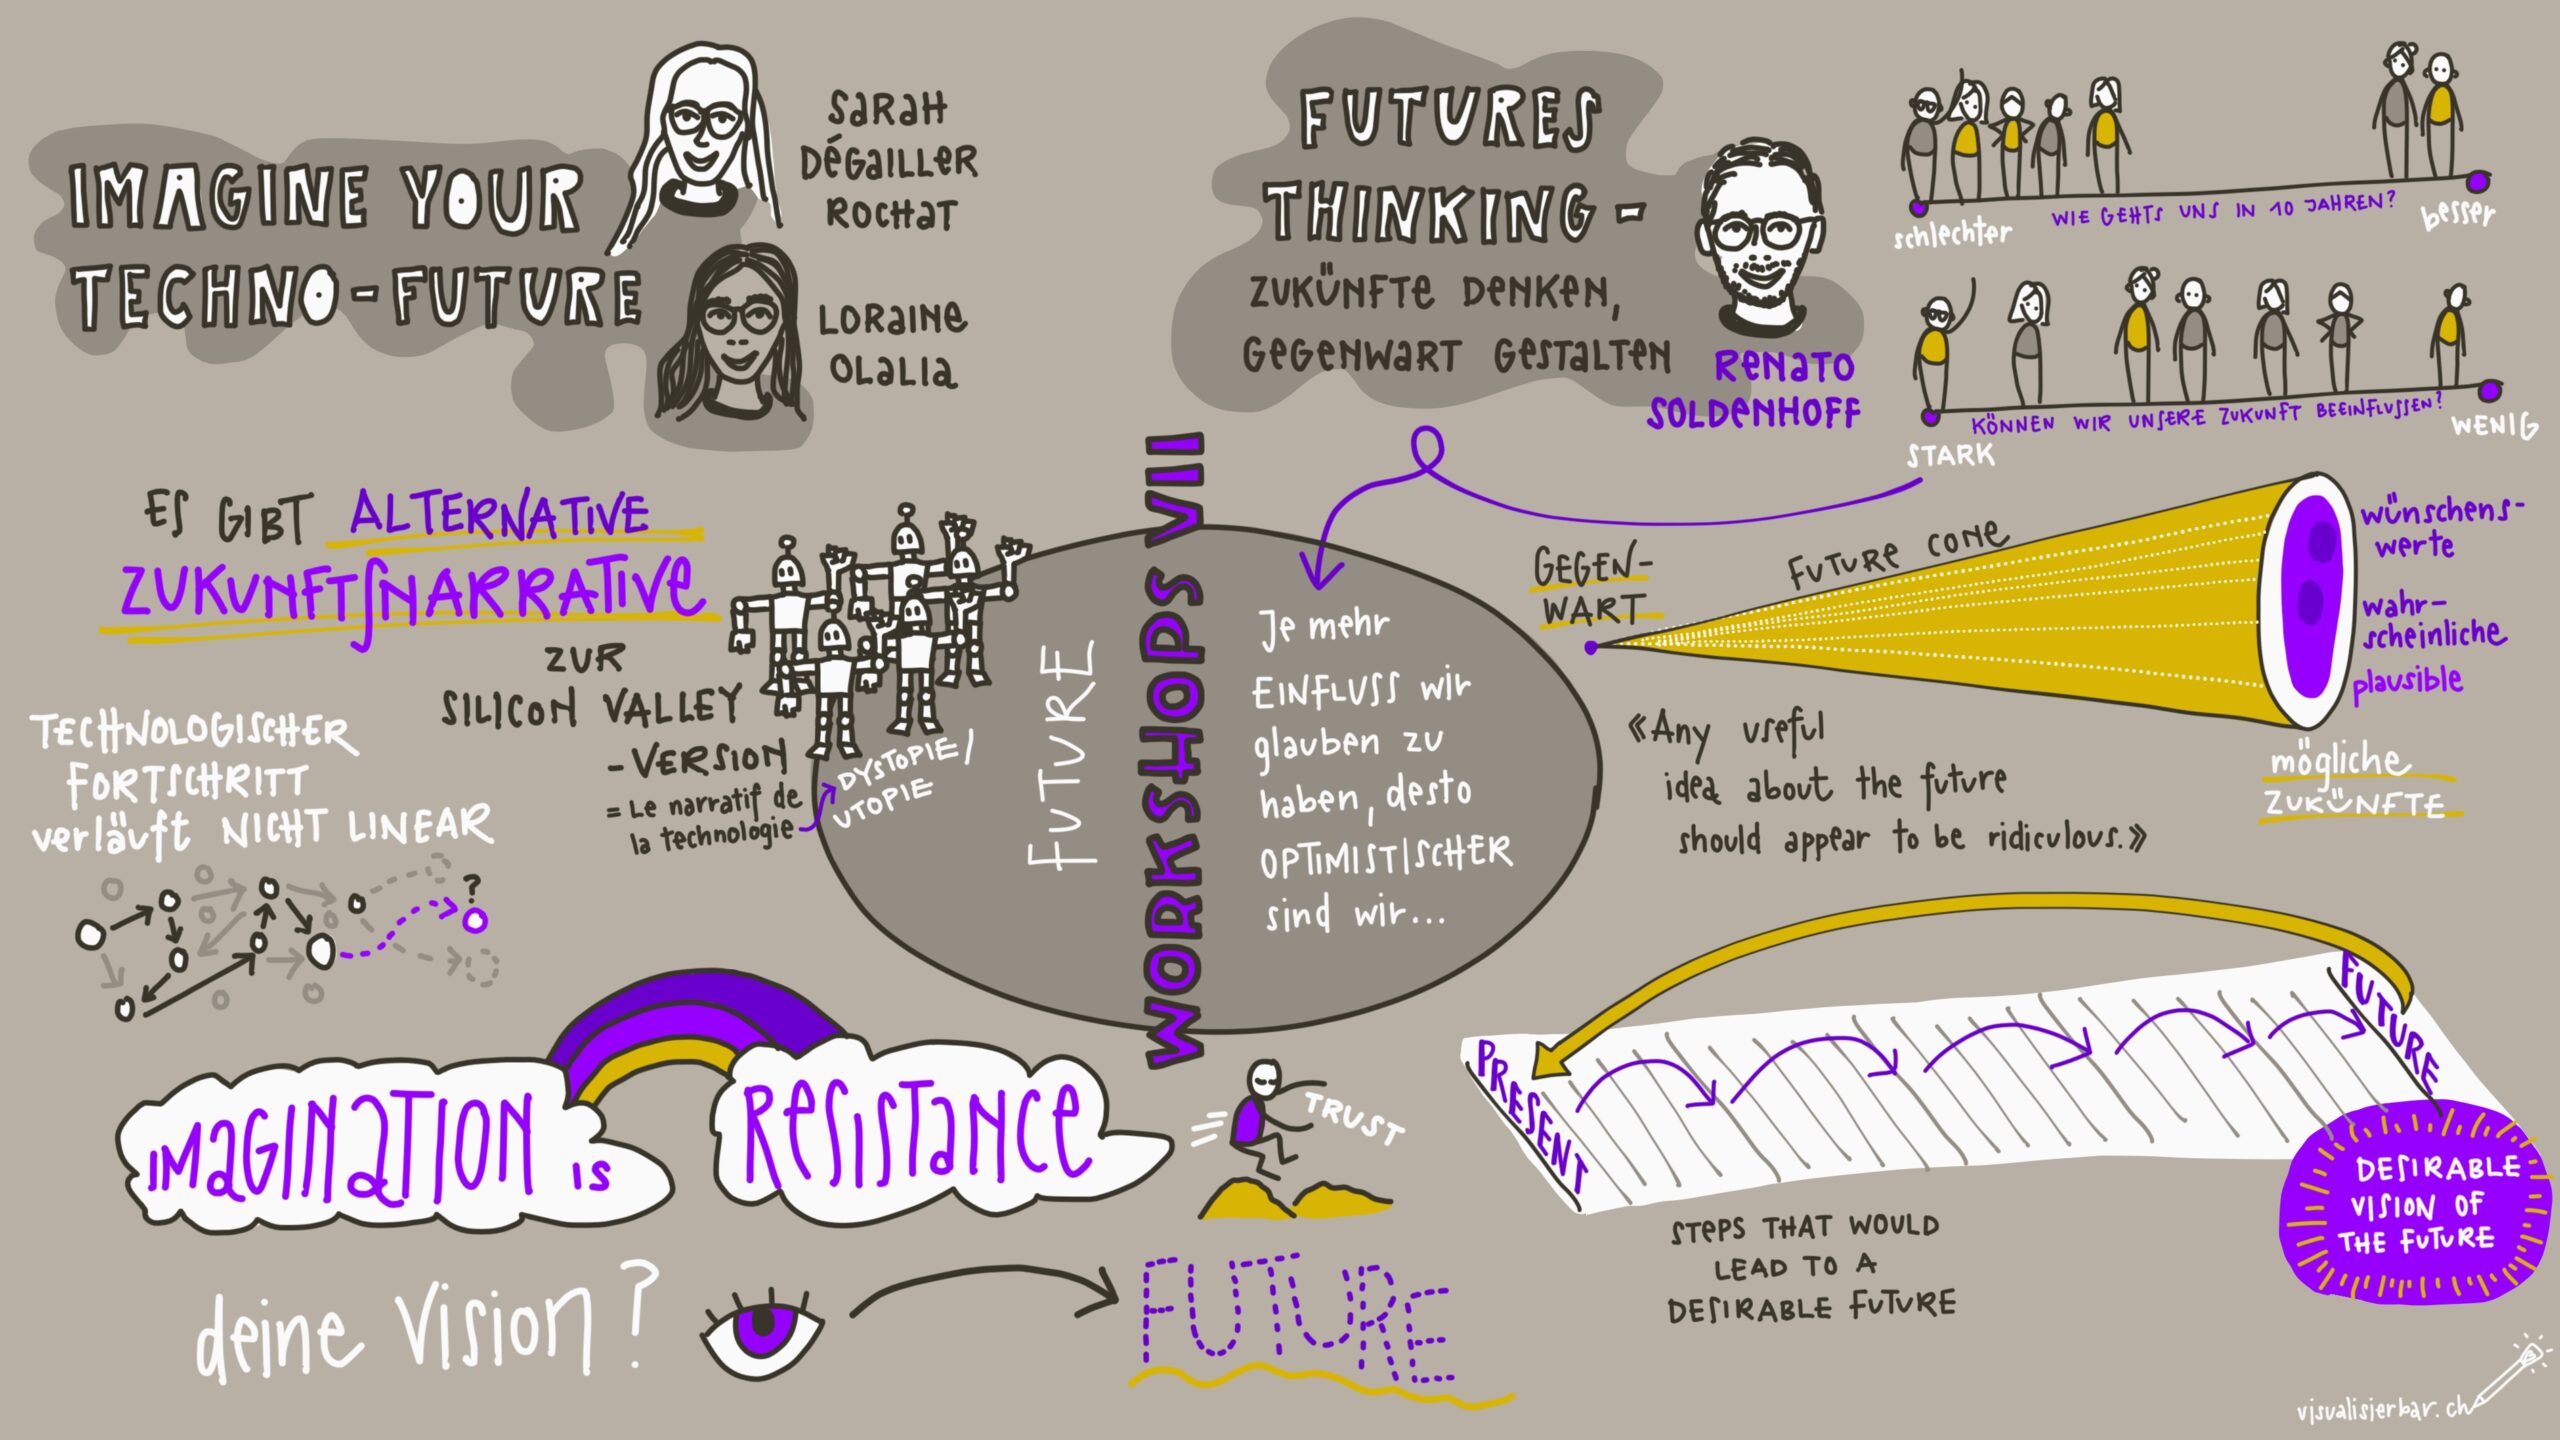 IMAGINE YOUR
TECHNO-FUTURE
SARAH
DÉGAILLER
ROCHAT
LORAINE
OLALIA
ES GIBT ALTERNATIVE
ZUKUNFTSNARRATIVE
ZUR
SILICON VALLEY
-VERSION
= Le narratif de
la technologie
DYSTOPIE/
UTOPIE
TECHNOLOGISCHER
FORTSCHRITT
verläuft NICHT LINEAR
?
IMAGINATION IS
RESISTANCE
deine Vision?
FUTURE
TRUST
WORKSHOPS VII
FUTURE
Je mehr
EINFLUSS wir
glauben zu
haben, desto
OPTIMISTISCHER
sind wir...
FUTURES
THINKING-
ZUKÜNFTE DENKEN,
GEGENWART GESTALTEN
RENATO
SOLDENHOFF
schlechter
WIE GEHTS UNS IN 10 JAHREN?
besser
STARK
KÖNNEN WIR UNSERE ZUKUNFT BEEINFLUSSEN?
WENIG
GEGEN-
WART
FUTURE CONE
wünschens-
werte
wahr-
scheinliche
plausible
mögliche
ZUKÜNFTE
«Any useful
idea about the future
should appear to be ridiculous.»
PRESENT
FUTURE
STEPS THAT WOULD
LEAD TO A
DESIRABLE FUTURE
DESIRABLE
VISION OF
THE FUTURE
visualisierbar.ch